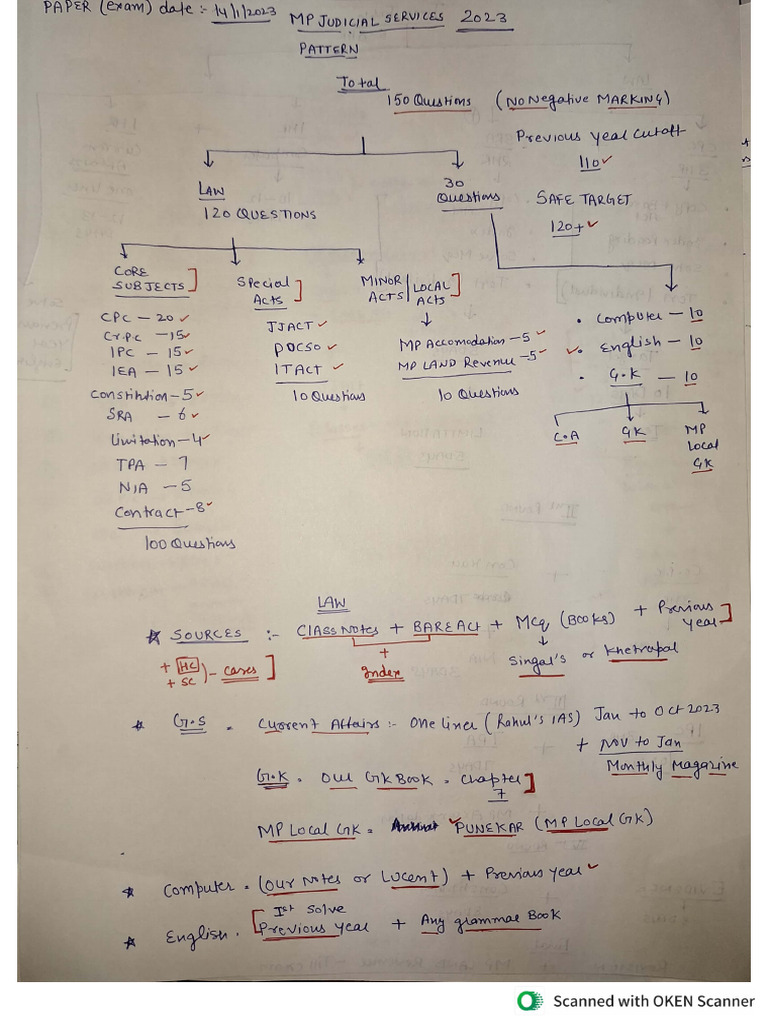 PAPER (exam) date :- 14/1/2023
MP JUDICIAL SERVICES 2023
PATTERN
Total
150 Questions (NO Negative MARKING)
Previous year cutoff
110 ✓
LAW
120 QUESTIONS
30
Questions
SAFE TARGET
120+ ✓
CORE
SUBJECTS]
CPC – 20 ✓
Cr.P.C – 15 ✓
IPC – 15 ✓
IEA – 15 ✓
Constitution – 5 ✓
SRA – 6 ✓
Limitation – 4 ✓
TPA – 7
NIA – 5
Contract – 8 ✓
100 Questions
Special
Acts]
JJACT ✓
POCSO ✓
ITAct ✓
10 Questions
MINOR | LOCAL
ACTS | Acts]
MP Accomodation – 5 ✓
MP LAND Revenue – 5 ✓
10 Questions
• Computer – 10
✓ • English – 10
• G.K – 10
C.A
GK
MP
Local
GK
LAW
* SOURCES :- Class Notes + BARE Act + Mcq (BOOKS) + Previous
year]
+ HC
+ SC
) - Cases]
+
Index
Singal's or Khetrapal
* G.S = Current Affairs :- One liner (Rahul's IAS) Jan to Oct 2023
+ Nov to Jan
Monthly Magazine
G.K. = Our GK Book = Chapter
7]
MP Local GK = ✓ PUNEKAR (MP Local GK)
* Computer = (Our Notes or Lucent) + Previous Year ✓
* English = [Ist Solve
Previous year + Any grammae Book
Scanned with OKEN Scanner